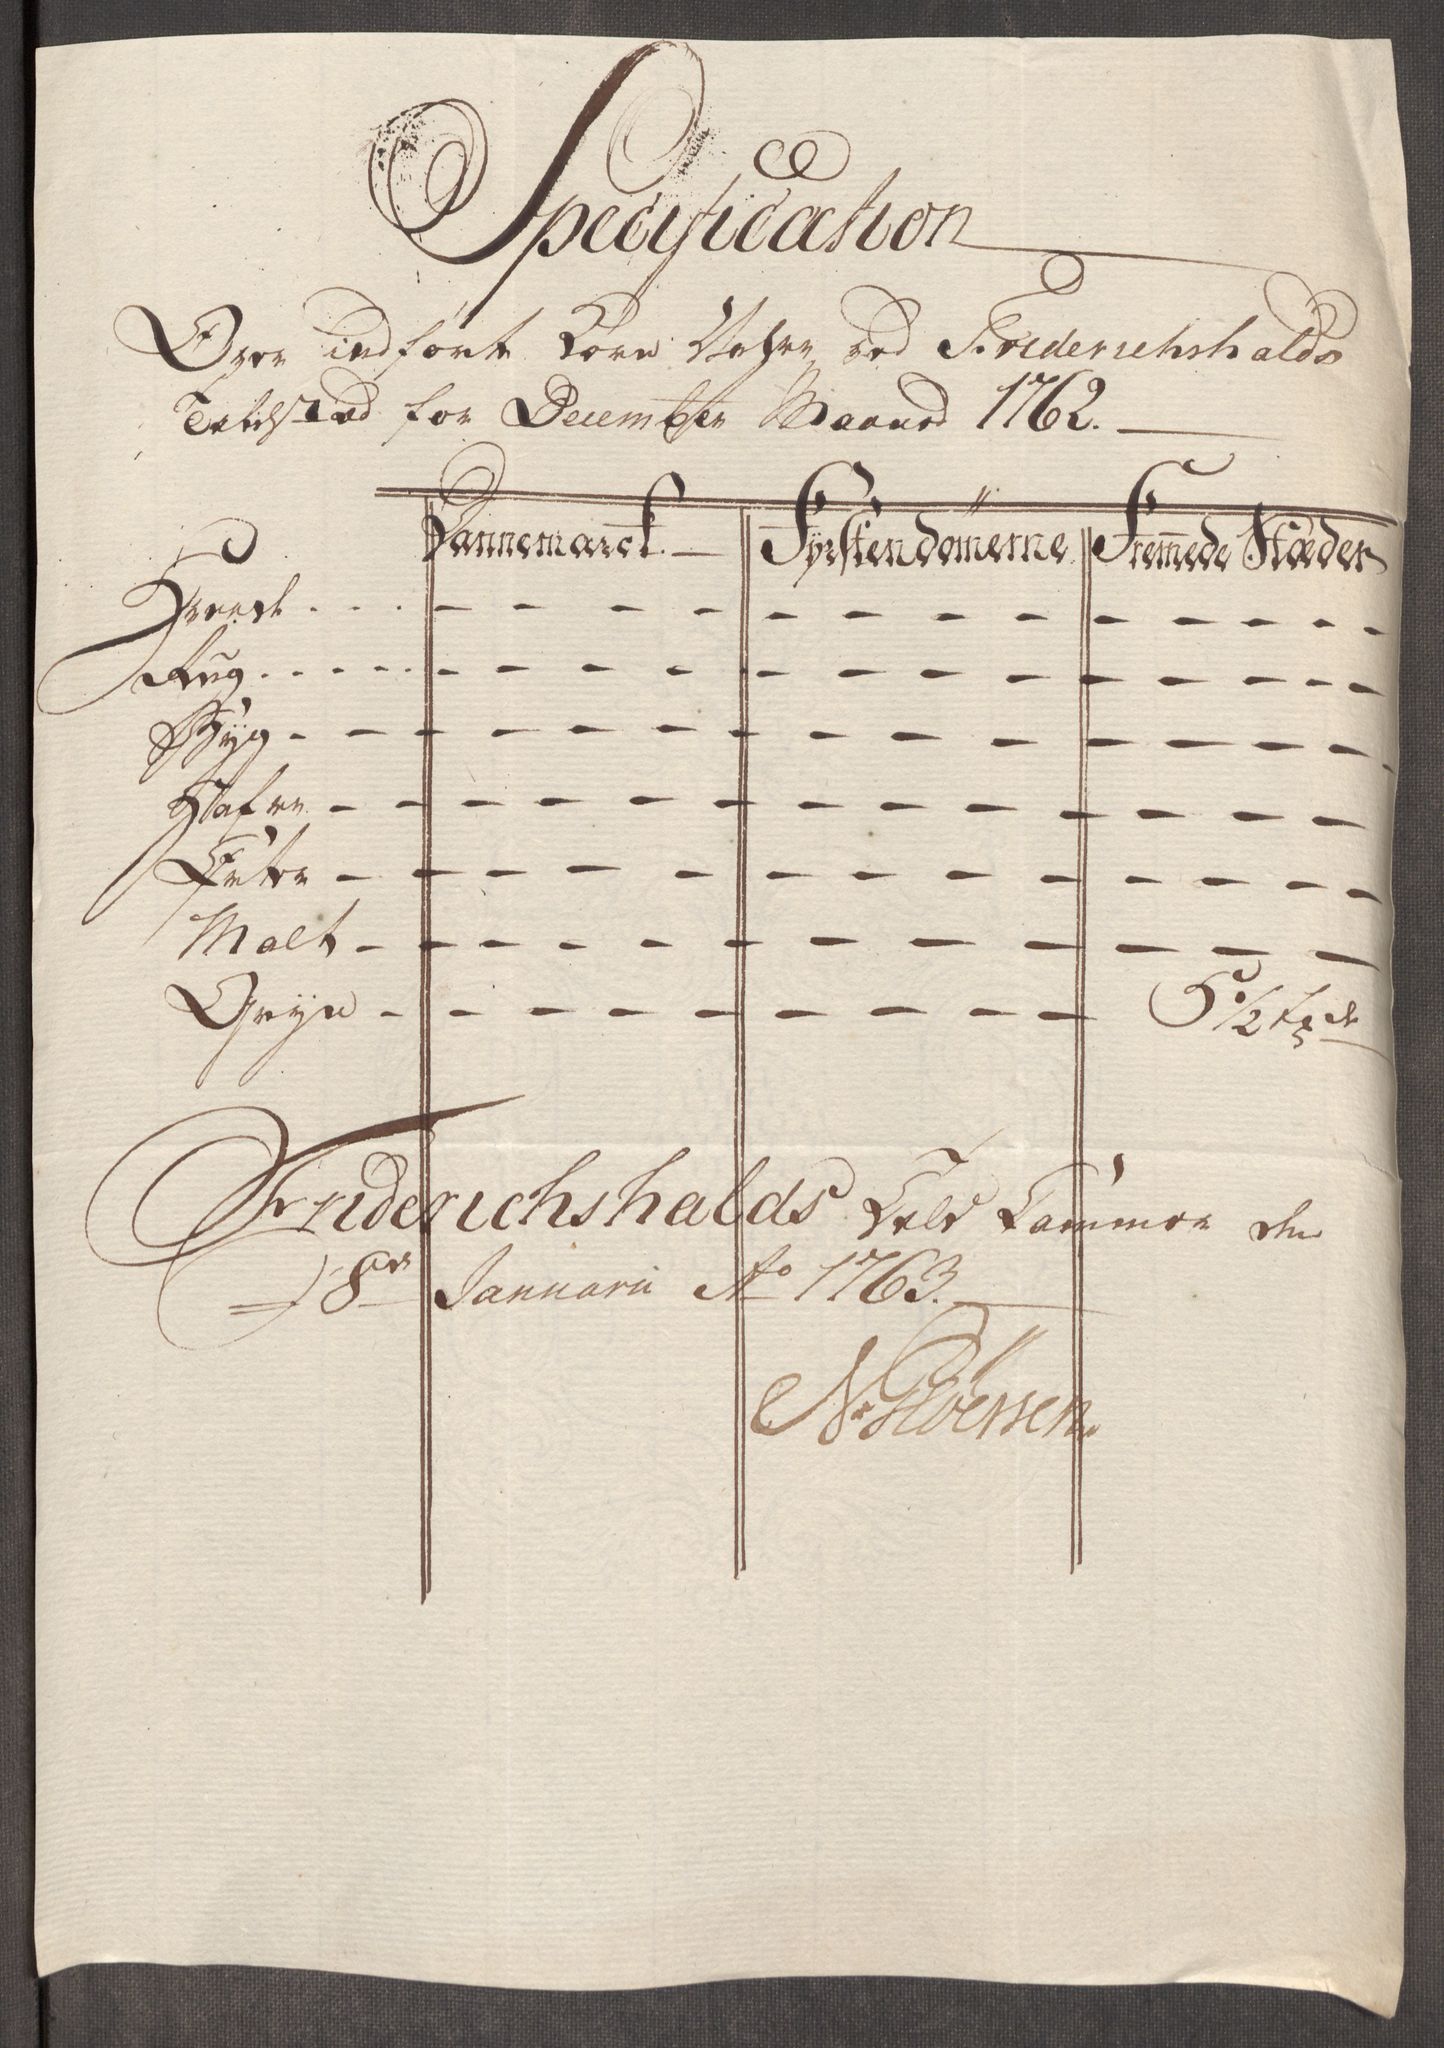 Specification
Over indført Korn Vahre ved Friderichshalds
Toldsted for December Maaned 1762.
Dannemarck Fyrstendomerne Fremmede Stæder
Hvede - - - -
Rug - - - -
Byg - - - -
Hafre - - - -
Erter - - - -
Malt - - - -
Gryn - - - - 5 1/2 Td
Friderichshalds Told Cammer den
8de Januarii Ao 1763.